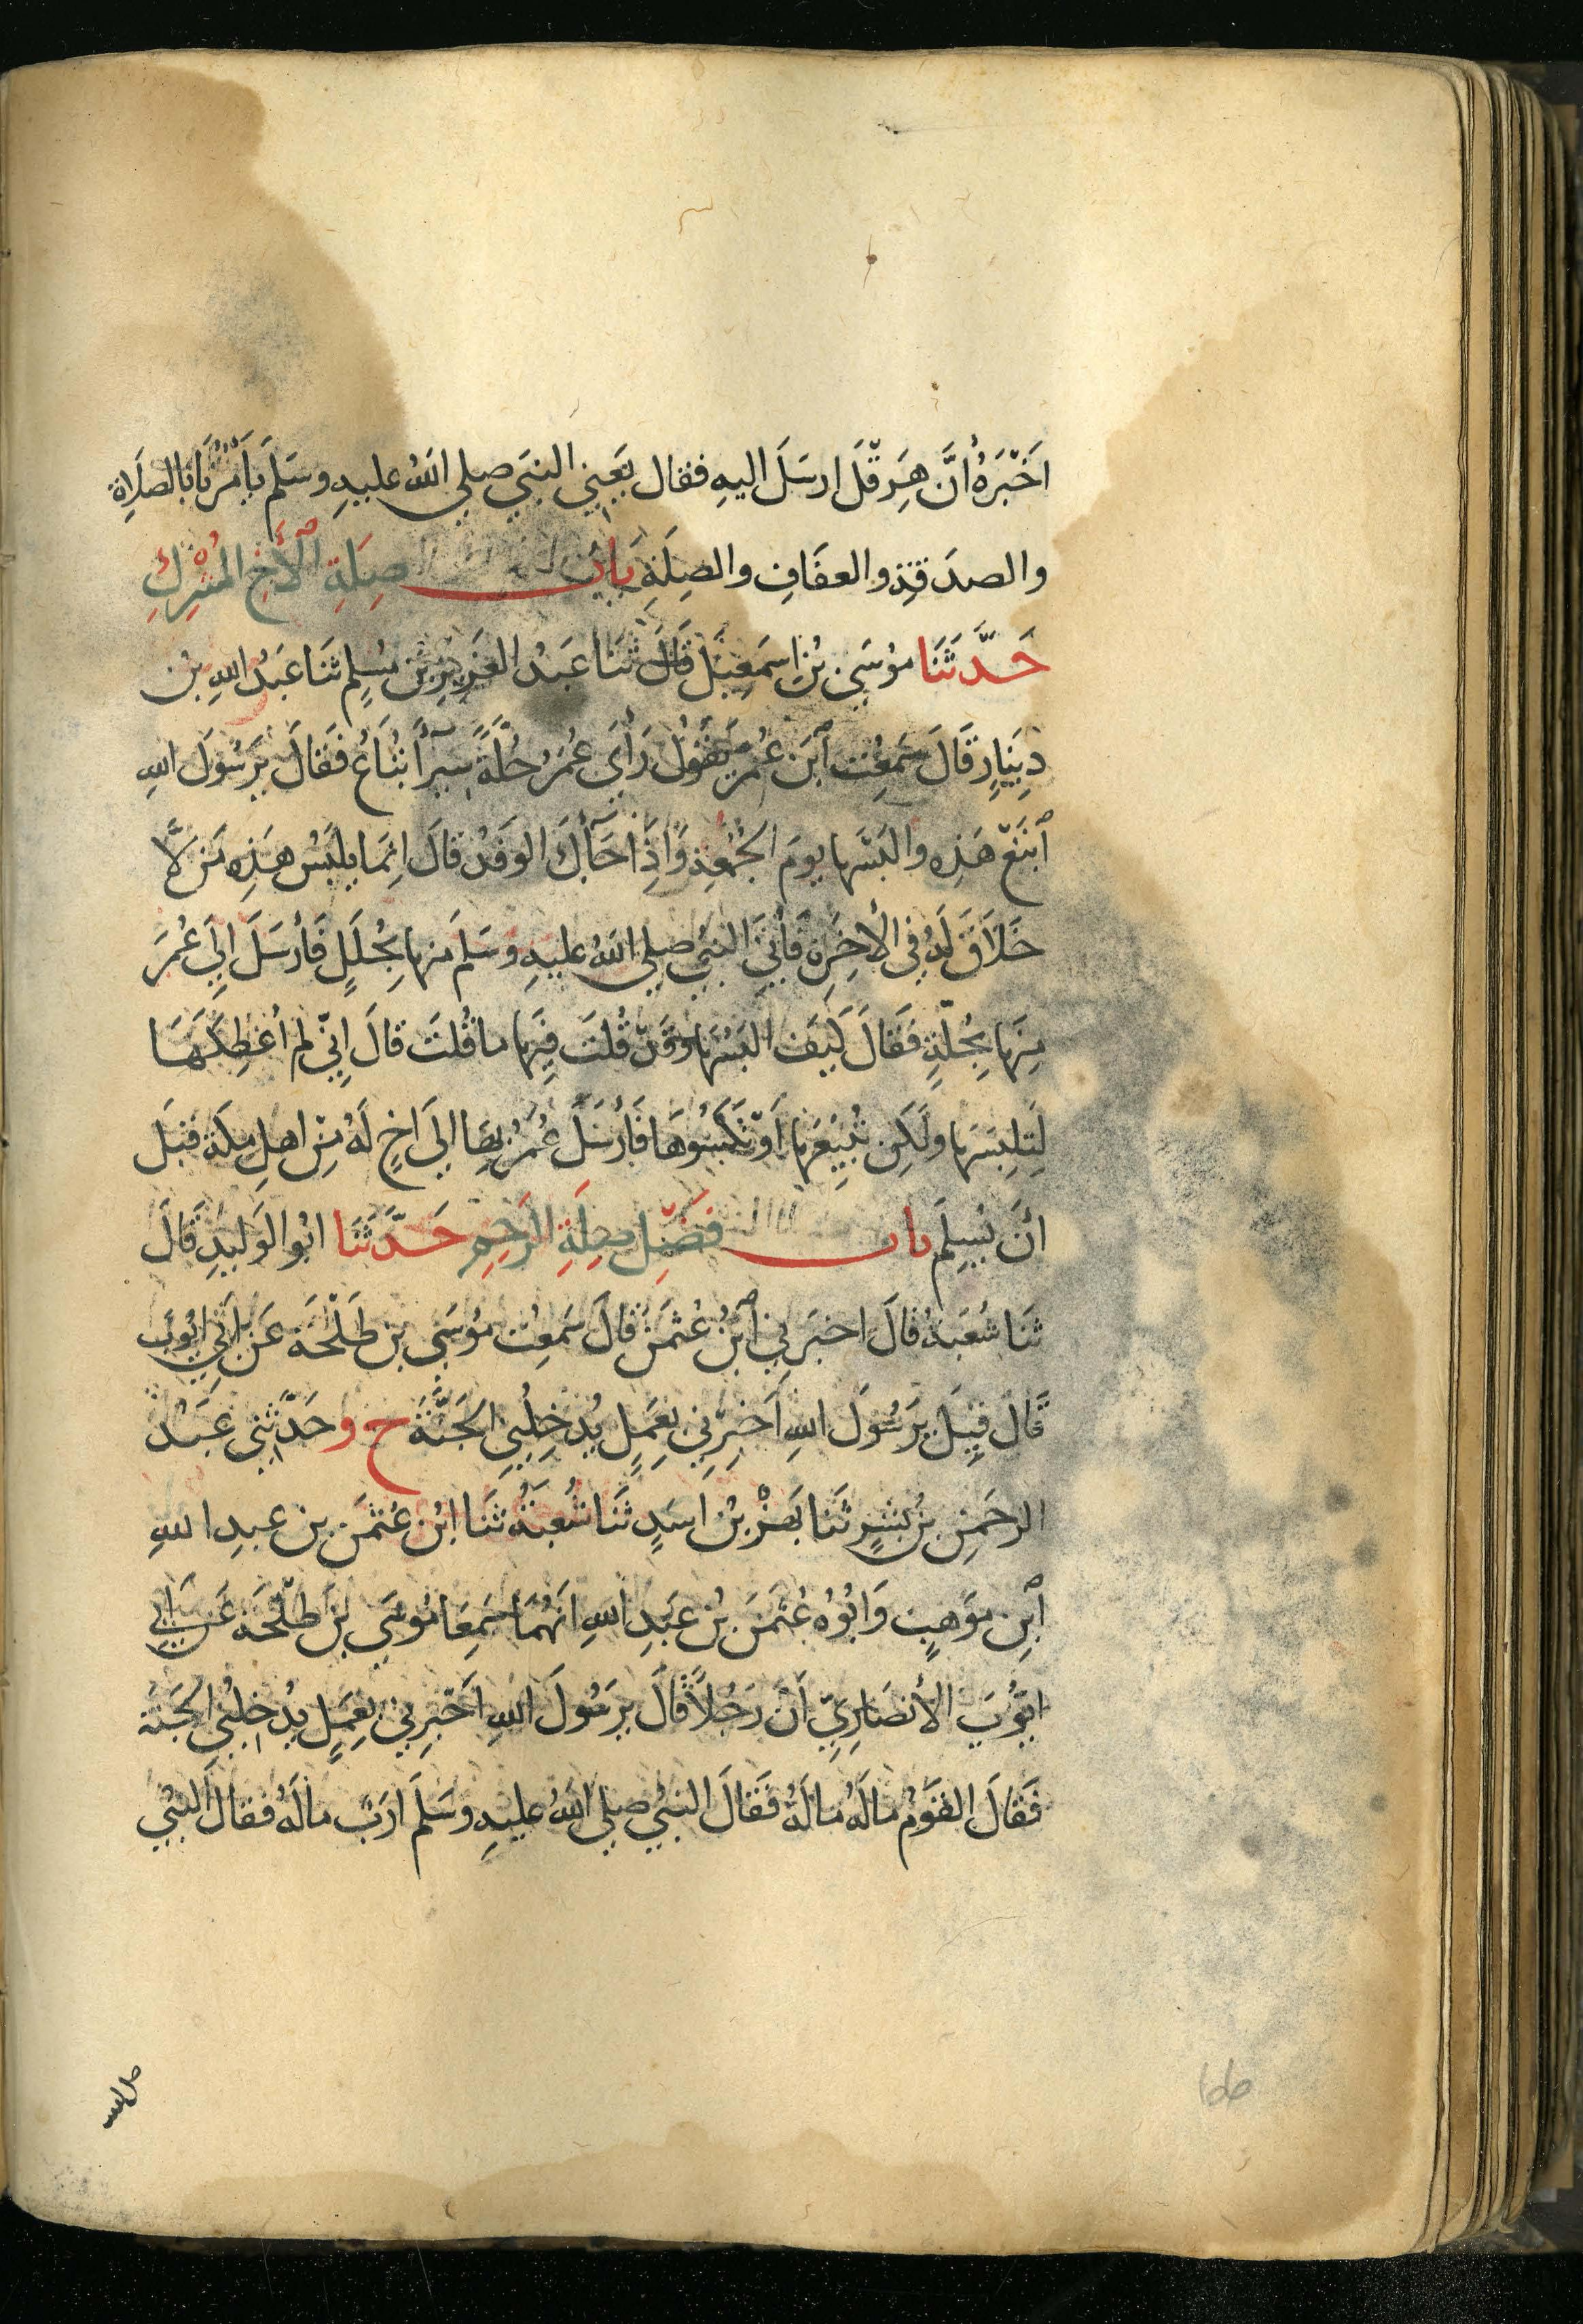 اَخْبَرَهُ اَنَّ هِرَقْلَ ارسَلَ اليهِ فقال يَعنِي النبَي صلي اللهُ عليهِ وسَلمَ يَاْمُرُنَا بالصلَاةِ
والصدَقةِ والعفَافِ والصِلَةِ بَابُ صِلَةِ الْأَخِ المُشْرِكِ
حَدَّثَنَا مُوسَي بْنُ اِسمَعِيْلَ قَالَ ثنَا عَبْدُ العَزِيزِ بْنُ مُسْلِمٍ ثنَا عَبْدُ اللهِ بْنُ
دِيْنَارٍ قَالَ سَمِعْتُ اْبنَ عُمَرَ يَقُوْلُ رَأَي عُمَرُ حُلَّةً سِيَرَآءَ تُبَاعُ فَقَالَ يَرَسُولَ اللهِ
اْبْتَعْ هَذِهِ وَالبَسْهَا يومَ الجُمُعَةِ وَاِذَا جَآءَكَ الوَفْدُ قالَ اِنمَا يلبَسُ هَذِهِ مَنْ لَّا
خَلَاقَ لَهُ فِي الْآخِرَةِ فَأُتِيَ النبيُ صلي اللهُ عليهِ وسَلمَ منهَا بِحُلَلٍ فَأَرْسَلَ اِلَي عُمَرَ
مِنْهَا بِحُلّةٍ فَقَالَ كَيْفَ البَسُهَا وَقَدْ قُلتَ فِيهَا مَا قُلتَ قَالَ اِنِّي لم اُعْطِكَهَا
لِتَلبِسَهَا ولَكِن تَبِيْعَهَا اَوْ تَكْسُوْهَا فَأَرْسَلَ عُمَرُ بِهَا اليَ اخٍ لَهُ مِنْ اهلِ مكةَ قبْلَ
اَنْ يُسِلمَ بابُ فَضْلِ صِلَةِ الرَحِمِ حَدَّثَنَا ابُو الوَلِيْدِ قَالَ
ثنَا شُعْبَةُ قالَ اخبرَنِي اْبْنُ عُثْمَنَ قَالَ سَمِعْتُ مُوْسَي بن طَلْحَةَ عَنْ اَبِي ايُوْبَ
قَالَ قِيْلَ يَرَسُوْلَ اللهِ اَخبِرْنِي بعَمَلٍ يُدخِلُنِي الجَنَّةَ ح وحَدَّثَنِي عَبْدُ
الرحمَنِ بنُ بِشْرٍ ثَنَا بَهْزُ بْنُ اَسَدٍ ثَنَا شُعْبَةُ ثَنَا ابْنُ عُثْمَنَ بن عبدِ اللهِ
اْبْنِ مَوْهِبٍ وَابُوْهُ عُثْمَنُ بْنُ عَبدِ اللهِ اَنَّهُمَا سَمِعَا مُوسَي بْنَ طلْحَةَ عَنْ اَبِي
ايُّوْبَ الأنصَارِيِّ اَنَّ رَجُلاً قَالَ يَرَسُولَ اللهِ اَخْبِرْنِي بِعَمَلٍ يُدْخِلُنِي الجَنةَ
فَقَالَ القَوْمُ مَالَهُ مَالَهُ فَقَالَ النبيُ صلي اللهُ عليهِ وسَلمَ اَرَبٌ مالَهُ فقالَ النبيُ